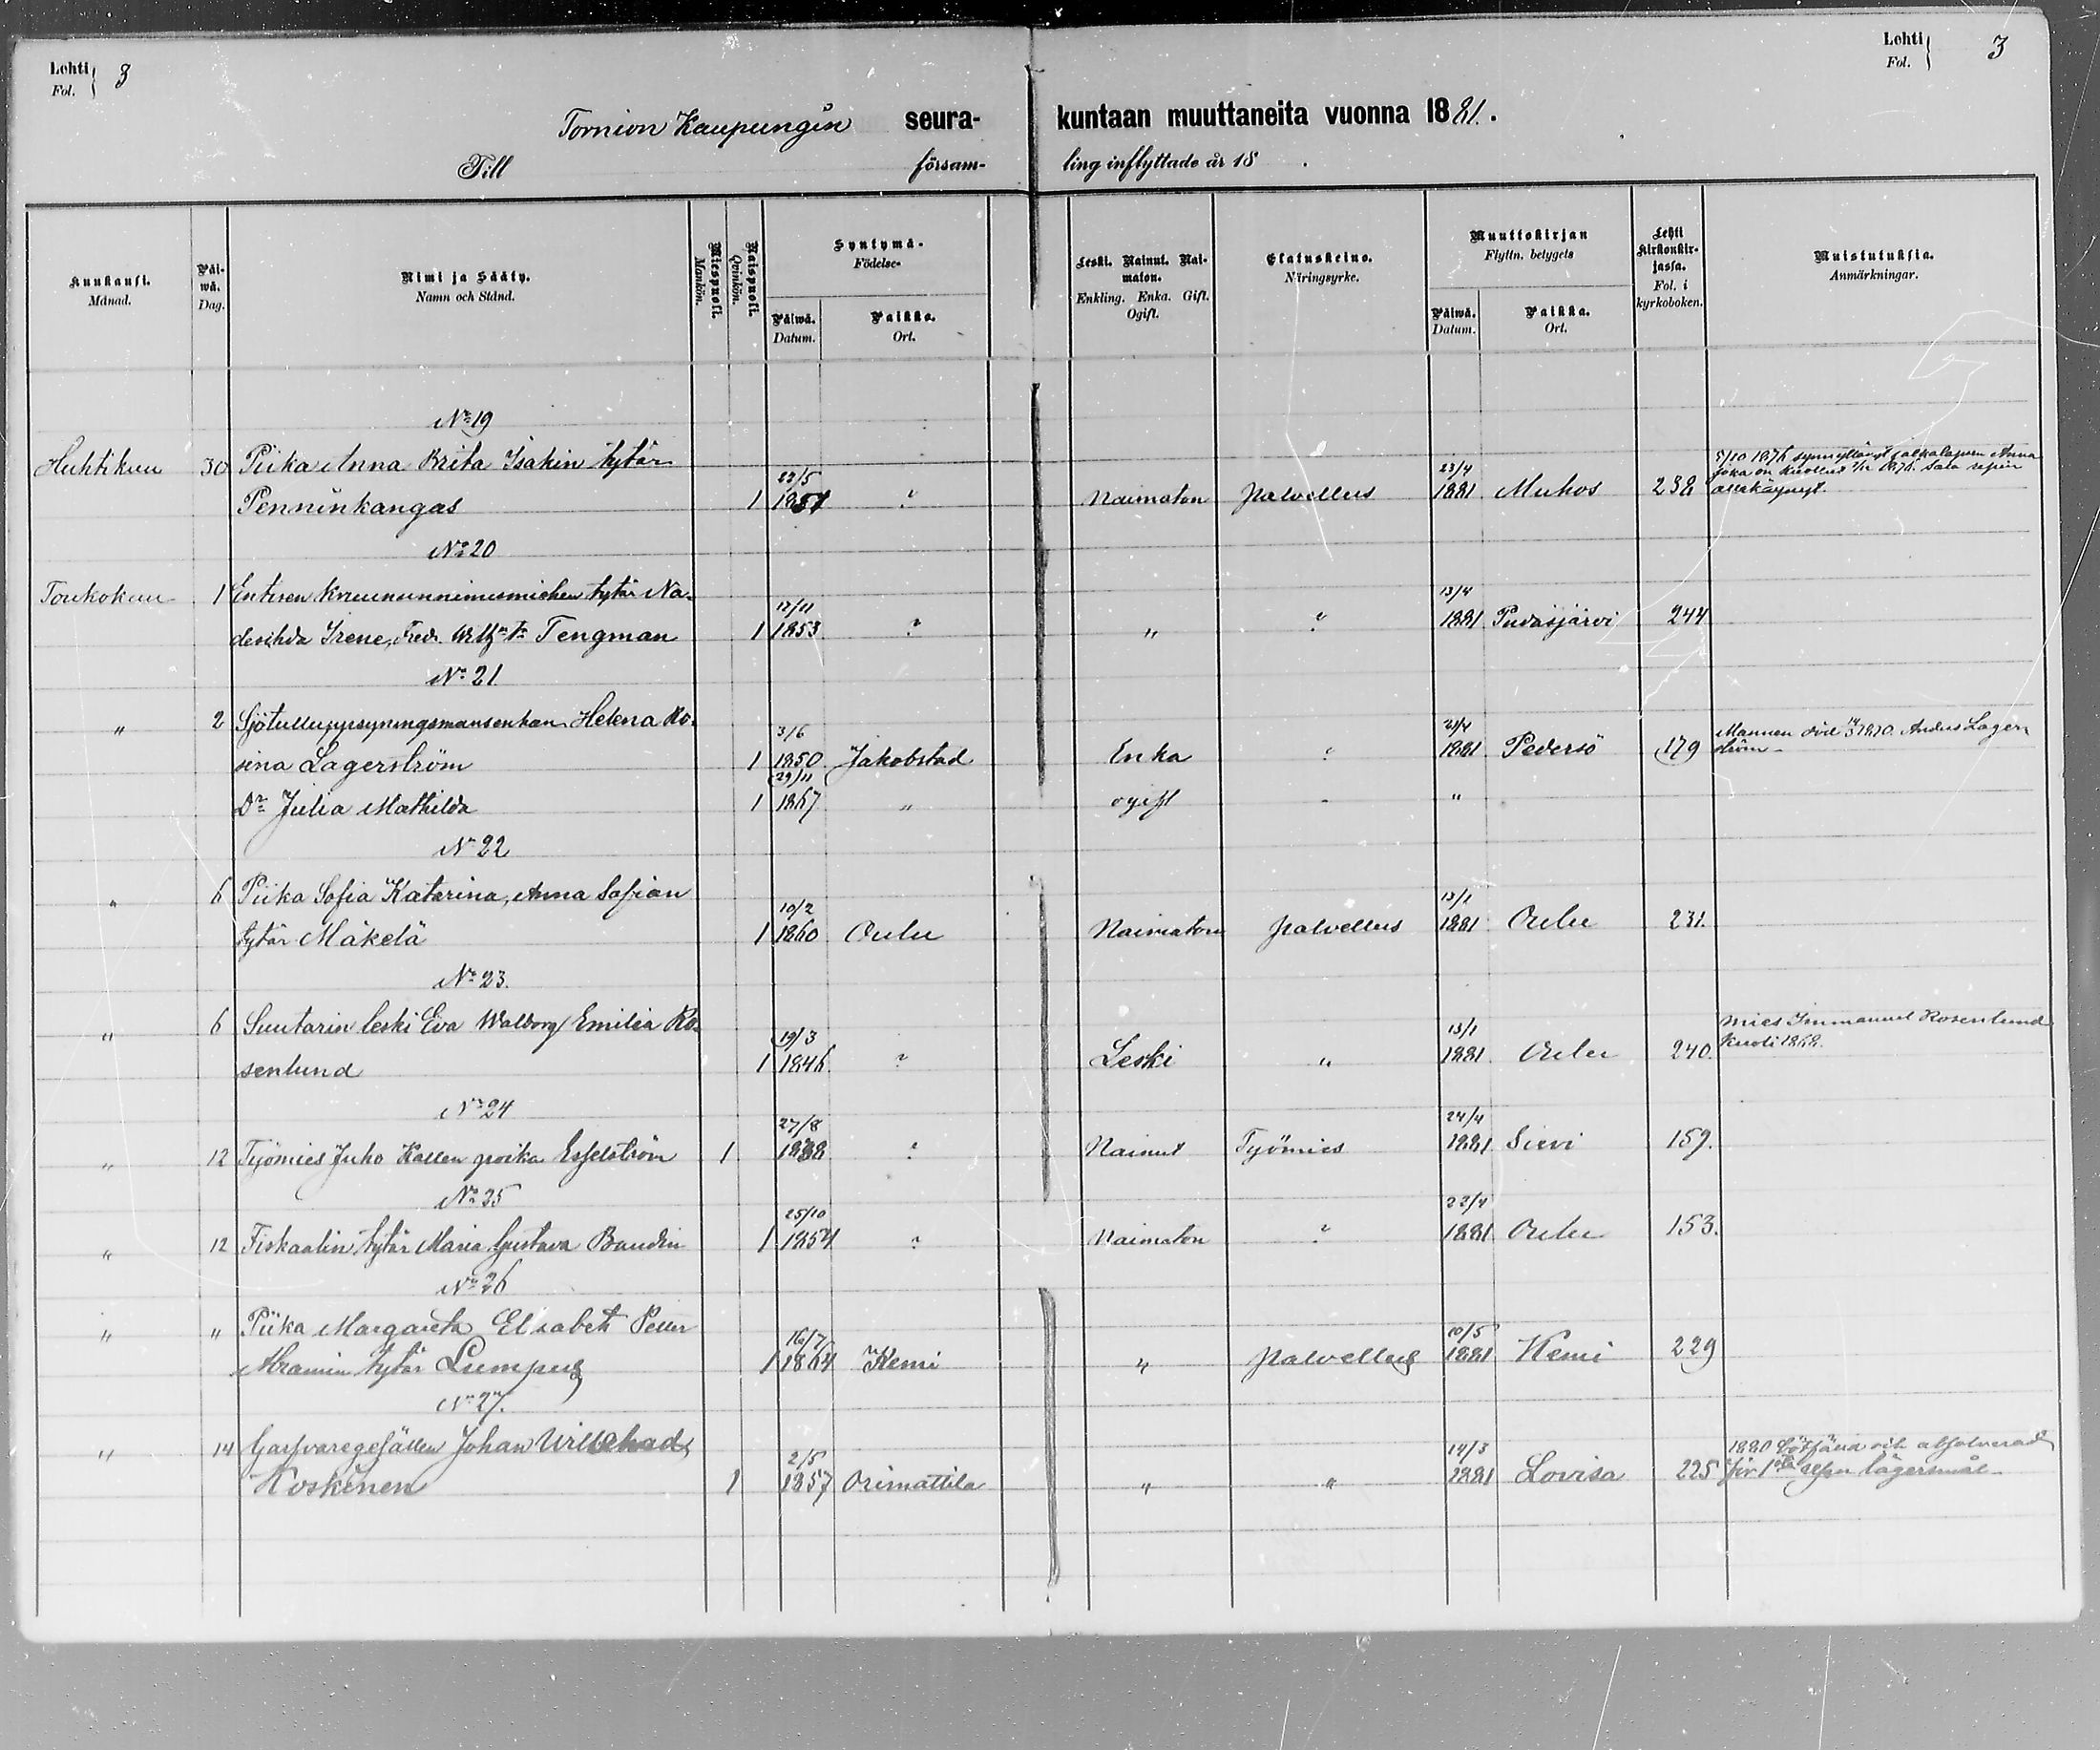 Lehti Fol. 3
Lehti Fol. 3
Tornion Kaupungin seura-kuntaan muuttaneita vuonna 1881.
Till försam-ling inflyttade år 18 .
Kuukausi. Månad.
Päiwä. Dag.
Nimi ja Sääty. Namn och Stånd.
Miespuoli. Mankön.
Naispuoli. Qvinkön.
Syntymä- Födelse-
Päiwä. Datum.
Paikka. Ort.
Leski. Nainut. Naimaton. Enkling. Enka. Gift. Ogift.
Elatuskeino. Näringsyrke.
Muuttokirjan Flyttn. betygets
Päiwä. Datum.
Paikka. Ort.
Lehti Kirkonkirjassa. Fol. i kyrkoboken.
Muistutuksia. Anmärkningar.
No 19
Huhtikuu 30 Piika Anna Brita Isakin tytär 22/5 23/4 5/10 1876 synnyttänyt jalkalapsen Anna
joka on kuollut 1876. Sala
Penninkangas 1 1851 ? Naimaton palvellus 1881 Muhos 238
No 20
Toukokuu 1 Entisen kruununnimismiehen tytär Na- 12/11 13/4
deschda Irene, Fredr. Tengman 1 1853 ? " ? 1881 Pudasjärvi 244
No 21.
" 2 Sjötulluppsyningsmansenkan Helena Ro- 3/6 21/4 Mannen död 1870. Anders Lager-
sina Lagerström 1 1850 Jakobstad Enka 1881 Pedersö 179 ström
29/11
Dr Julia Mathilda 1 1867 " ogift - "
No 22
" 6 Piika Sofia Katarina, Anna Sofian 10/2 13/1
tytär Mäkelä 1 1860 Oulu Naimaton palvellus 1881 Oulu 231.
No 23.
" 6 Suutarin leski Eva Walborg Emilia Ro- 19/3 13/1 Mies Immanuel Rosenlund
senlund 1 1846 ? Leski " 1881 Oulu 240. kuoli 1868.
No 24
27/8 24/4
" 12 Työmies Juho Kallen poika 1 1838 ? Nainut Työmies 1881 Sievi 159.
No 25
25/10 22/4
" 12 Fiskaalin tytär Maria Gustava Baudin 1 1854 ? Naimaton ? 1881 Oulu 153.
No 26
" " Piika Margareta Elisabeth Petter 16/7 10/5
Abramin tytär Lumpus 1 1864 Kemi " palvellus 1881 Kemi 229
No 27.
" 14 Garfvaregesällen Johan Willehad 2/5 14/3 1880 och absolverad
Koskenen 1 1857 Orimattila " " 1881 Lovisa 225 för 1sta lägersmål